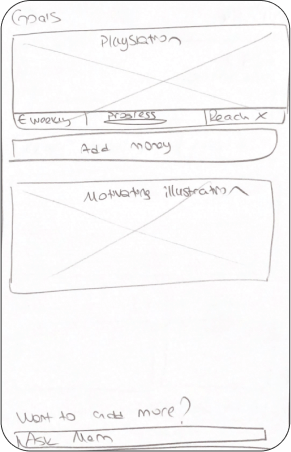 Goals
Playstation
€ weekly Progress Reach X
Add money
Motivating illustration
Want to add more?
Ask Mom